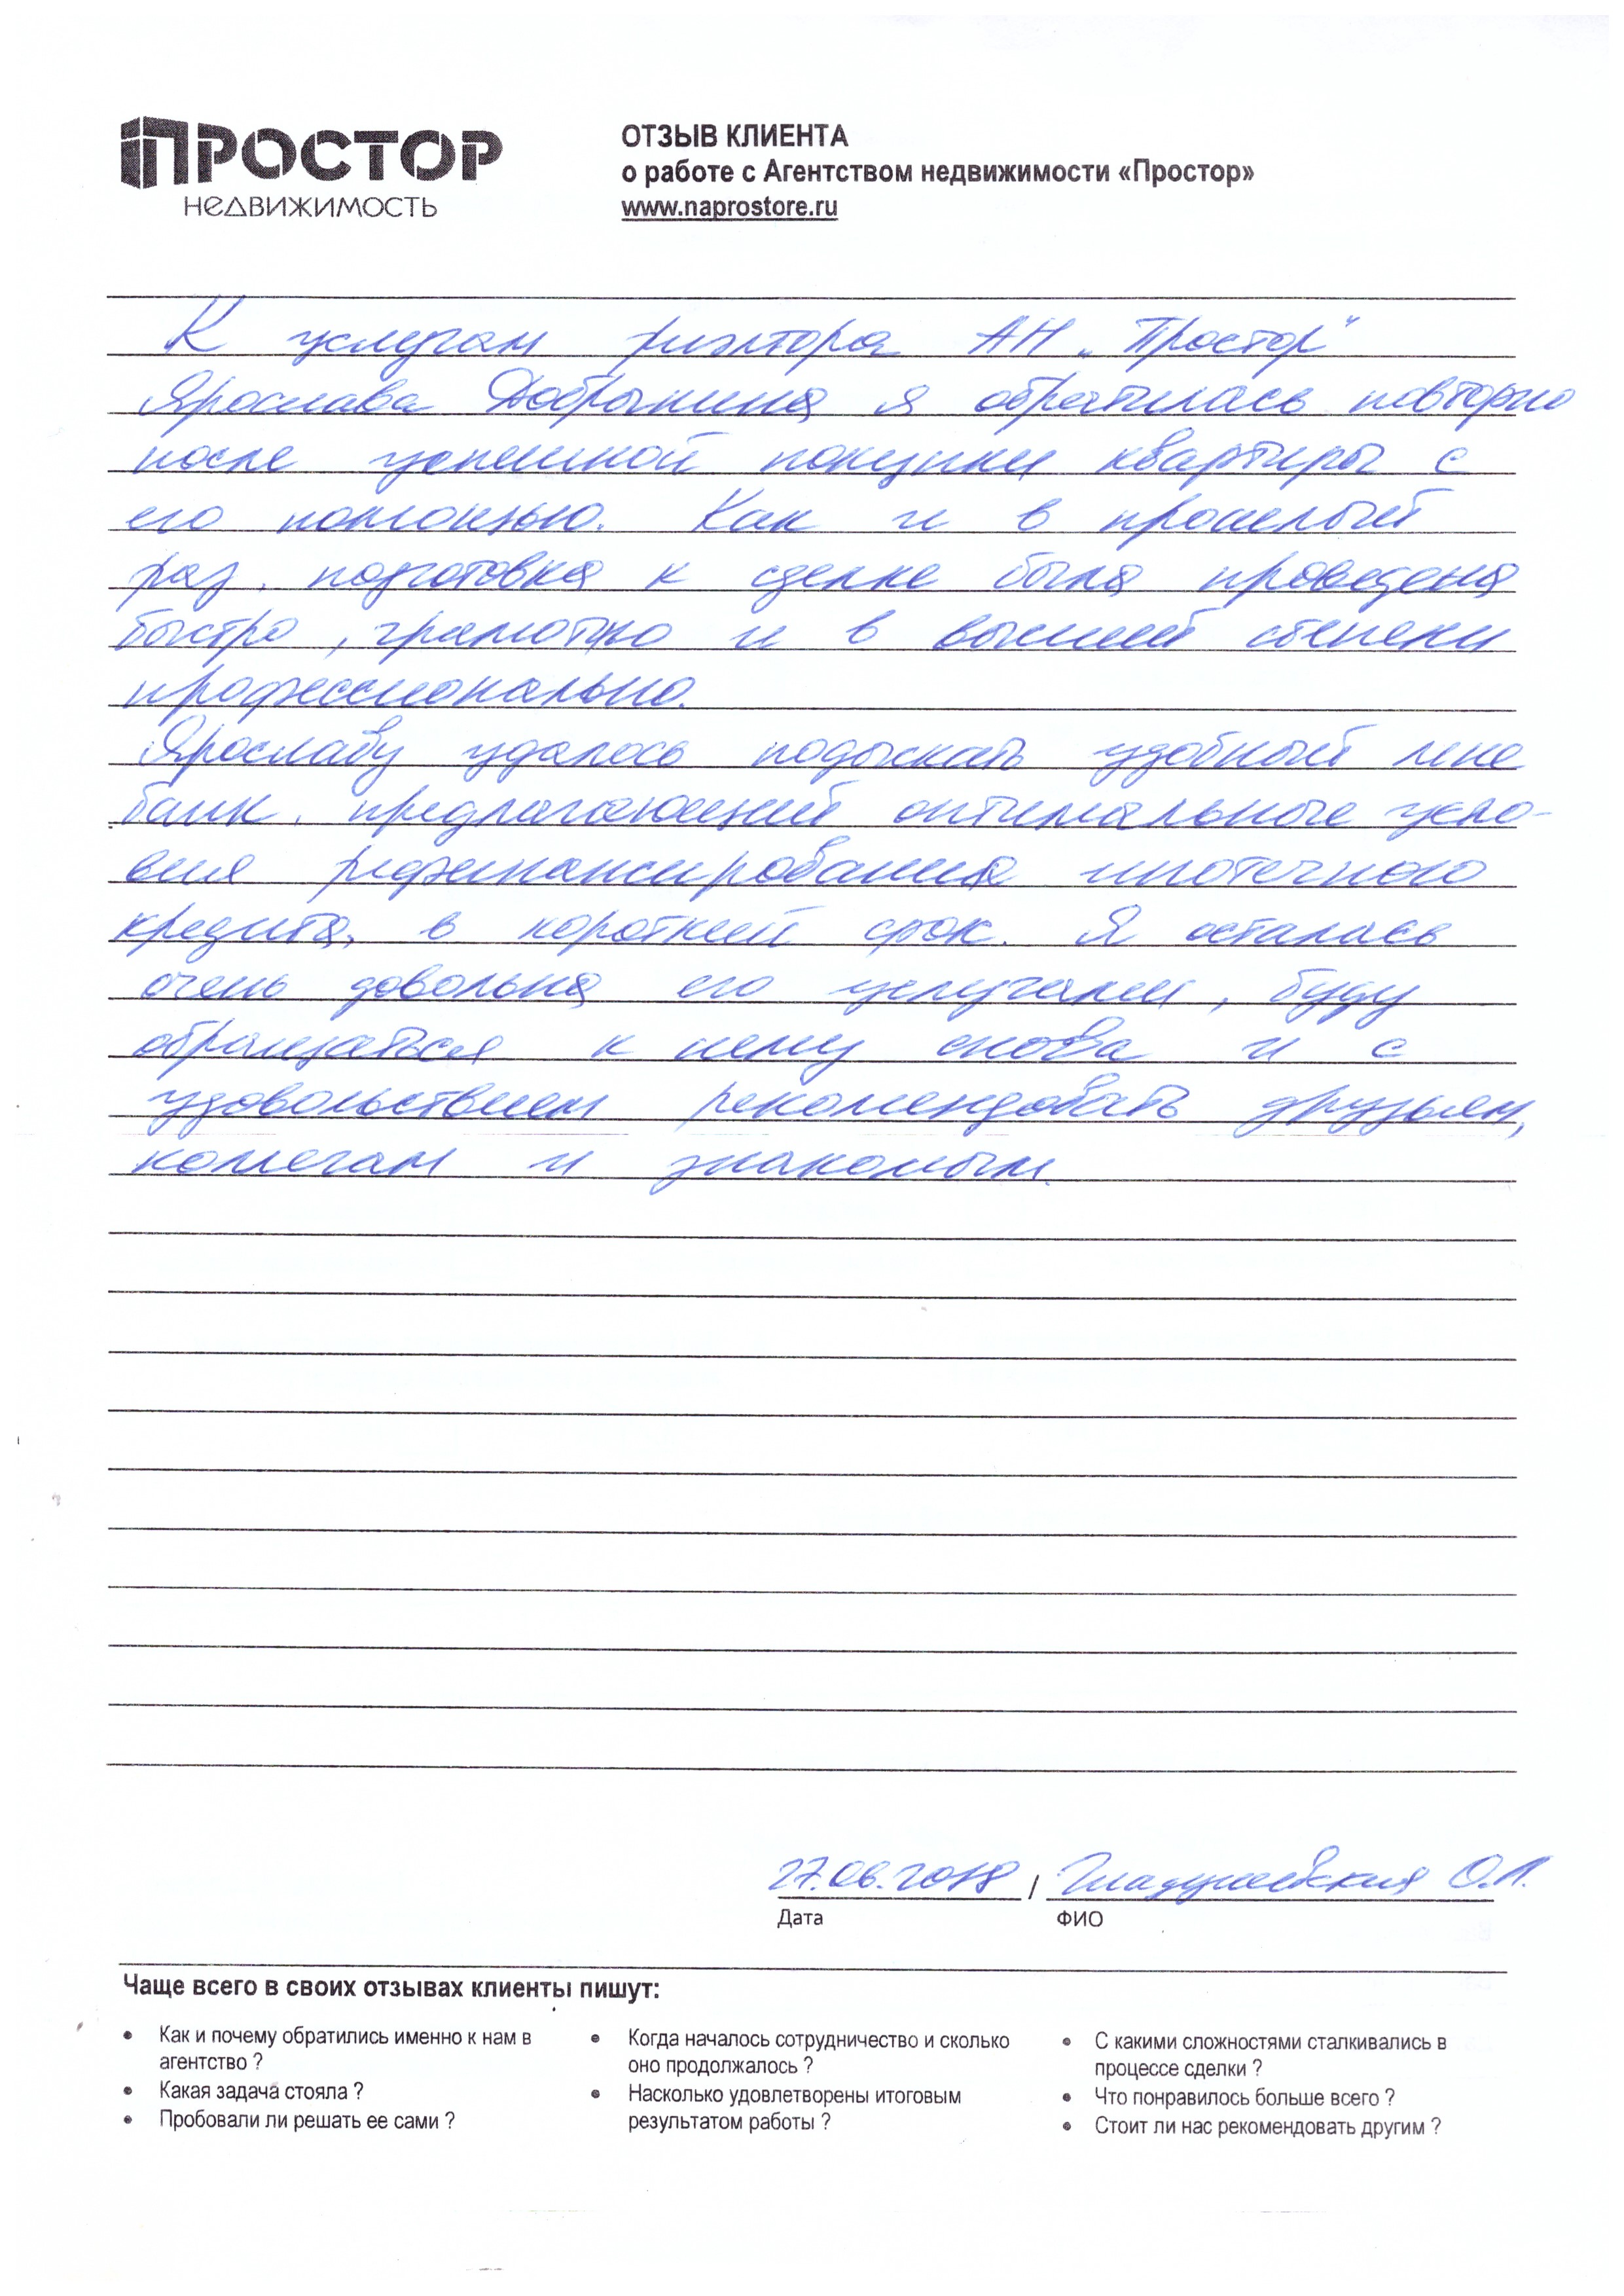 ПРОСТОР
НЕДВИЖИМОСТЬ
ОТЗЫВ КЛИЕНТА
о работе с Агентством недвижимости «Простор»
www.naprostore.ru
К услугам риэлтора АН „Простор"
Ярослава Добрынина я обратилась повторно
после успешной покупки квартиры с
его помощью. Как и в прошлый
раз, подготовка к сделке была проведена
быстро, грамотно и в высшей степени
профессионально.
Ярославу удалось подыскать удобный мне
банк, предлагающий оптимальные усло-
вия рефинансирования ипотечного
кредита, в короткий срок. Я осталась
очень довольна его услугами, буду
обращаться к нему снова и с
удовольствием рекомендовать друзьям,
коллегам и знакомым.
27.06.2018 / О.Л.
Дата ФИО
Чаще всего в своих отзывах клиенты пишут:
• Как и почему обратились именно к нам в
агентство ?
• Какая задача стояла ?
• Пробовали ли решать ее сами ?
• Когда началось сотрудничество и сколько
оно продолжалось ?
• Насколько удовлетворены итоговым
результатом работы ?
• С какими сложностями сталкивались в
процессе сделки ?
• Что понравилось больше всего ?
• Стоит ли нас рекомендовать другим ?